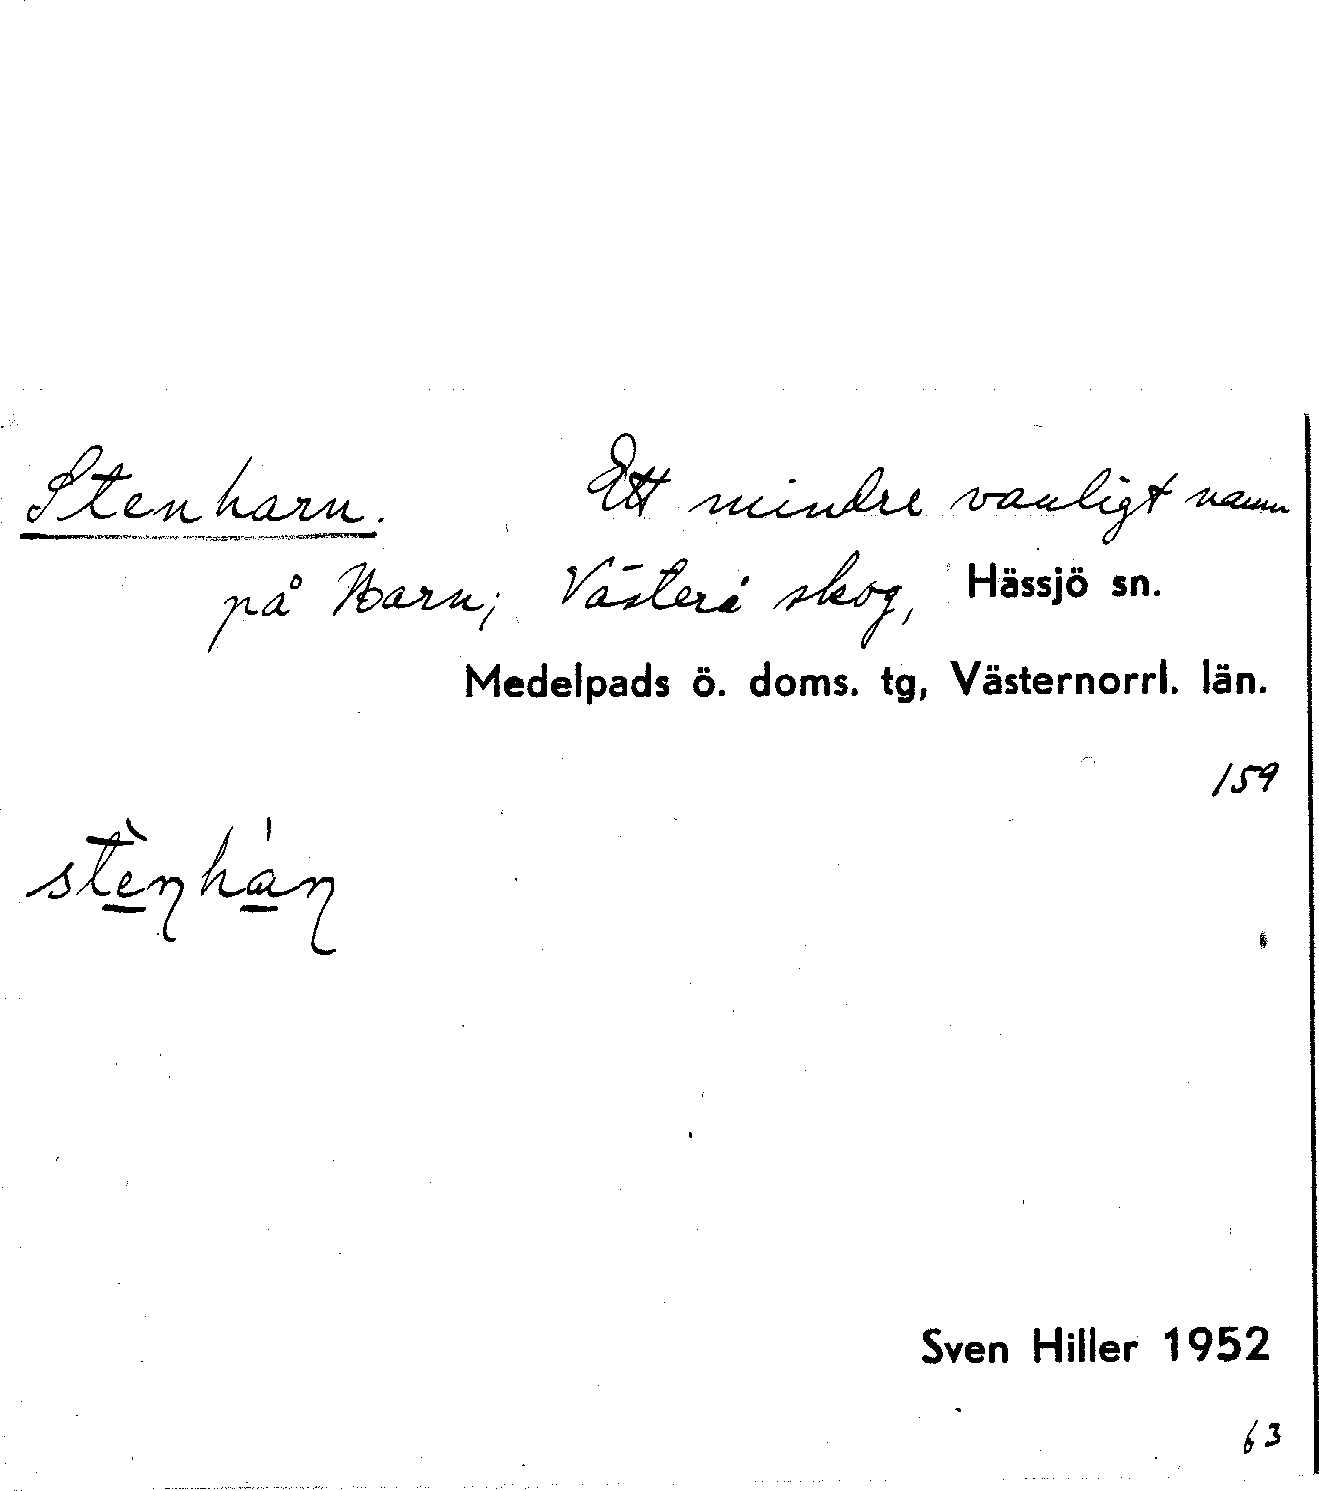 Stenharn. Ett mindre vanligt namn
på Harn; Västerå skog, Hässjö sn.
Medelpads ö. doms. tg, Västernorrl. län.
159
Sven Hiller 1952
63